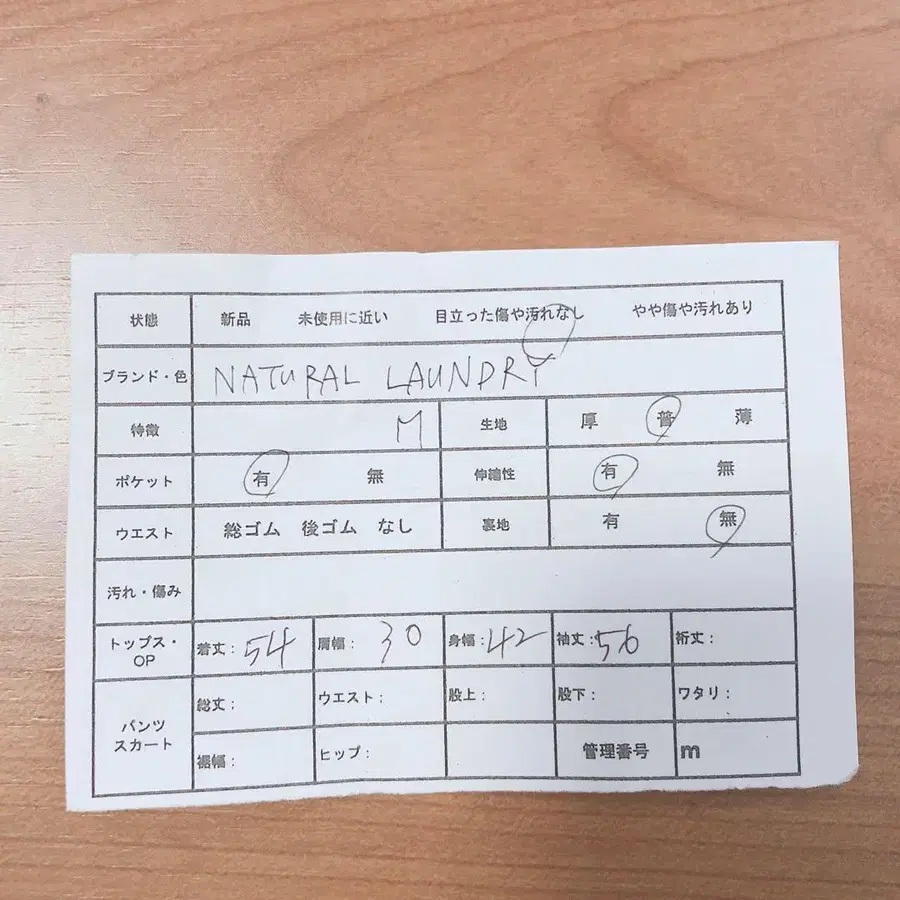 状態 新品 未使用に近い 目立った傷や汚れなし やや傷や汚れあり
ブランド・色 NATURAL LAUNDRY
特徴 M 生地 厚 普 薄
ポケット 有 無 伸縮性 有 無
ウエスト 総ゴム 後ゴム なし 裏地 有 無
汚れ・傷み
トップス・OP 着丈:54 肩幅:30 身幅:42 袖丈:56 裄丈:
パンツ スカート 総丈: ウエスト: 股上: 股下: ワタリ:
裾幅: ヒップ: 管理番号 m